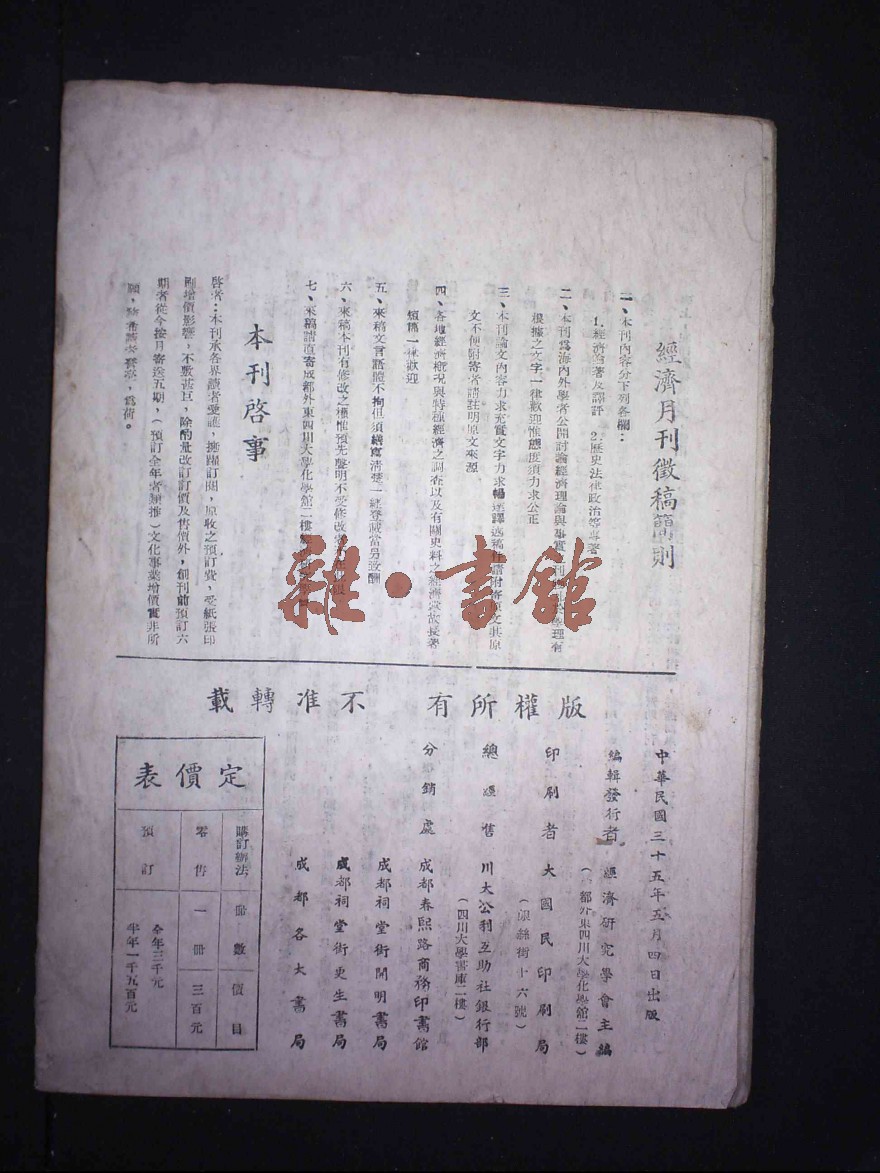 經濟月刊徵稿簡則
一、本刊內容分下列各欄：
1.經濟論著及譯評　2.歷史法律政治等專著
二、本刊爲海內外學者公開討論經濟理論與事實
根據之文字一律歡迎惟態度須力求公正
三、本刊論文內容力求充實文字力求暢達譯述稿件請附寄原文其原
文不便附寄者請註明原文來源
四、各地經濟概况與特種經濟之調查以及有關史料之經濟掌故長著
短稿一律歡迎
五、來稿文言語體不拘但須繕寫淸楚一經登載當另致酬
六、來稿本刊有修改之權惟預先聲明不受修改
七、來稿請直寄成都外東四川大學化學館二樓
本刊啓事
啓者：本刊承各界讀者愛護，擁躍訂閱，原收之預訂費，受紙張印
刷增價影響，不敷甚巨，除酌量改訂訂價及售價外，創刊前預訂六
期者從今按月寄送五期，（預訂全年者類推）文化事業增價實非所
願，
爲荷。
版權所有　不准轉載
中華民國三十五年五月四日出版
編輯發行者　經濟研究學會主編
（都外東四川大學化學館二樓）
印刷者　大國民印刷局
（銀絲街十六號）
總經售　川大公利互助社銀行部
（四川大學書庫二樓）
分銷處　成都春熙路商務印書館
成都祠堂街開明書局
成都祠堂街更生書局
成都各大書局
定價表
購訂辦法　冊數　價目
零售　一冊　三百元
預訂　全年三千元
半年一千五百元
雜·書館